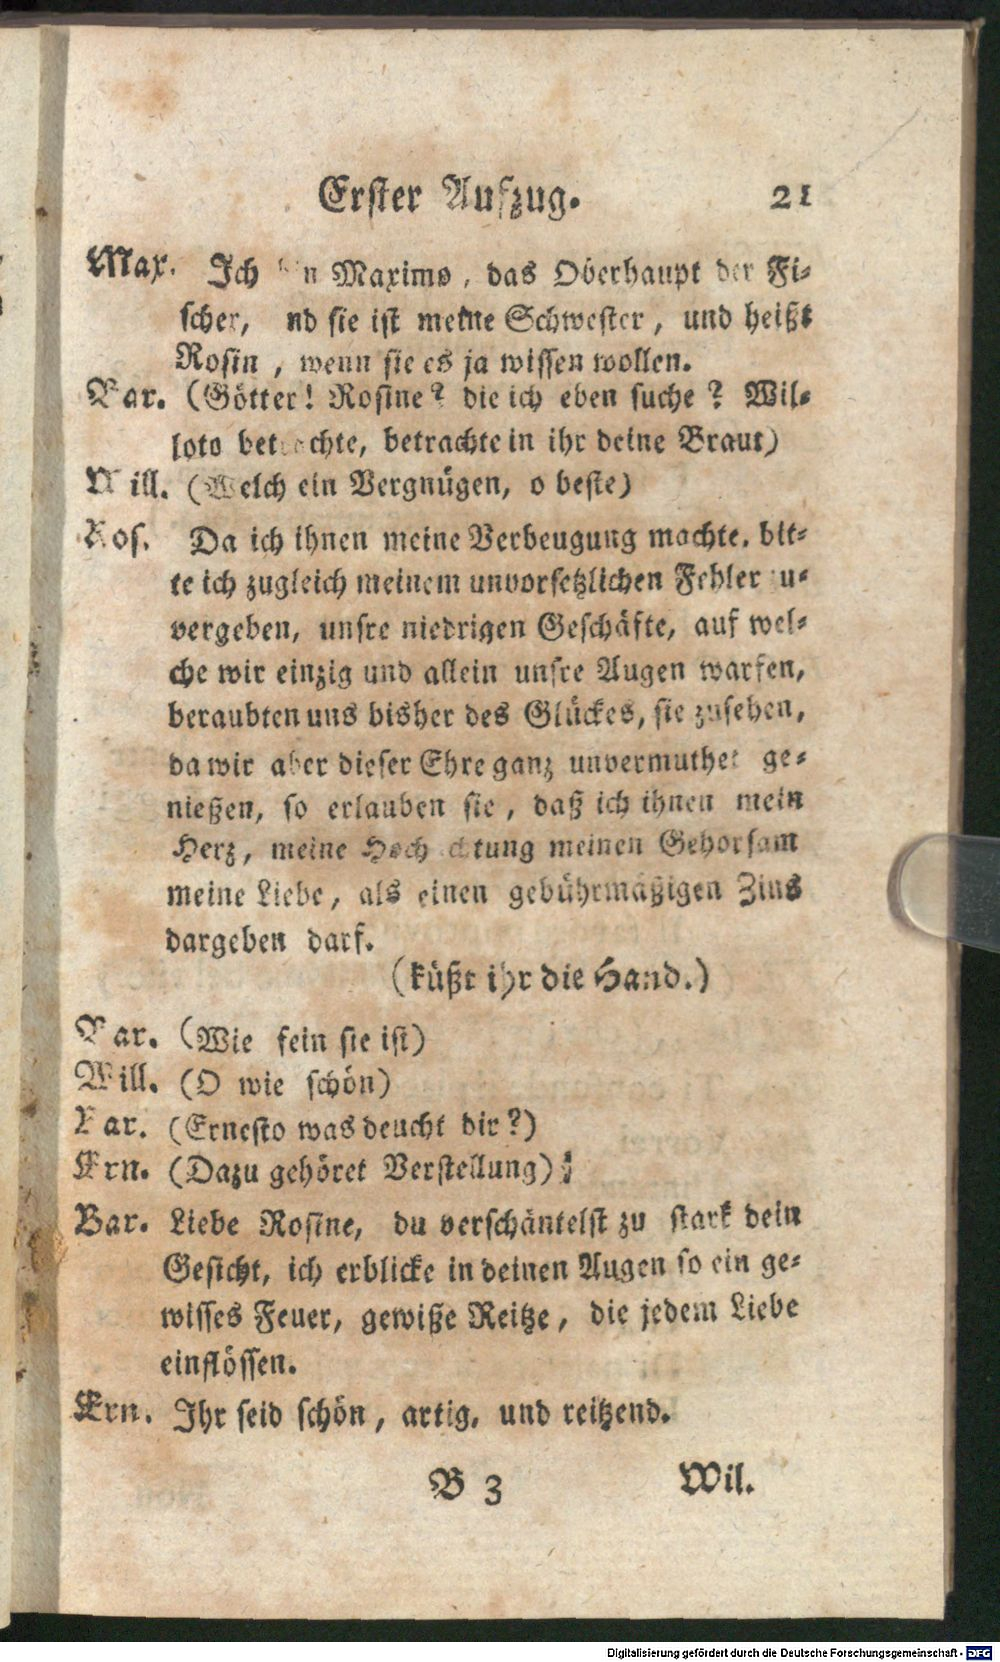 Erster Aufzug. 21
Max. Ich bin Maximo, das Oberhaupt der Fi-
scher, und sie ist meine Schwester, und heißt
Rosin , wenn sie es ja wissen wollen.
Bar. (Götter! Rosine? die ich eben suche? Wil-
loto betrachte, betrachte in ihr deine Braut)
Will. (Welch ein Vergnügen, o beste)
Ros. Da ich ihnen meine Verbeugung machte, bit-
te ich zugleich meinem unvorsetzlichen Fehler zu-
vergeben, unsre niedrigen Geschäfte, auf wel-
che wir einzig und allein unsre Augen warfen,
beraubten uns bisher des Glückes, sie zusehen,
da wir aber dieser Ehre ganz unvermuthet ge-
nießen, so erlauben sie, daß ich ihnen mein
Herz, meine Hochachtung meinen Gehorsam
meine Liebe, als einen gebührmäßigen Zins
dargeben darf.
(küßt ihr die Hand.)
Bar. (Wie fein sie ist)
Will. (O wie schön)
Bar. (Ernesto was deucht dir?)
Ern. (Dazu gehöret Verstellung)
Bar. Liebe Rosine, du verschäntelst zu stark dein
Gesicht, ich erblicke in deinen Augen so ein ge-
wisses Feuer, gewiße Reitze, die jedem Liebe
einflössen.
Ern. Ihr seid schön, artig, und reitzend.
B 3 Wil.
Digitalisierung gefördert durch die Deutsche Forschungsgemeinschaft - DFG